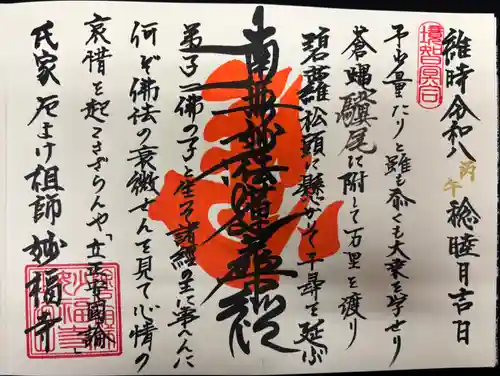 境智冥合
維時令和八丙午稔睦月吉日
予少量たりと雖も忝くも大乗を学せり
蒼蝿驥尾に附して万里を渡り
碧蘿松頭に懸かりて千尋を延ぶ
南無妙法蓮華経
弟子一佛の子と生れ諸經の王に事へんに
何ぞ佛法の衰微せんを見て心情の
哀惜を起こさざらんや「立正安國論」
氏家 厄よけ祖師 妙福寺